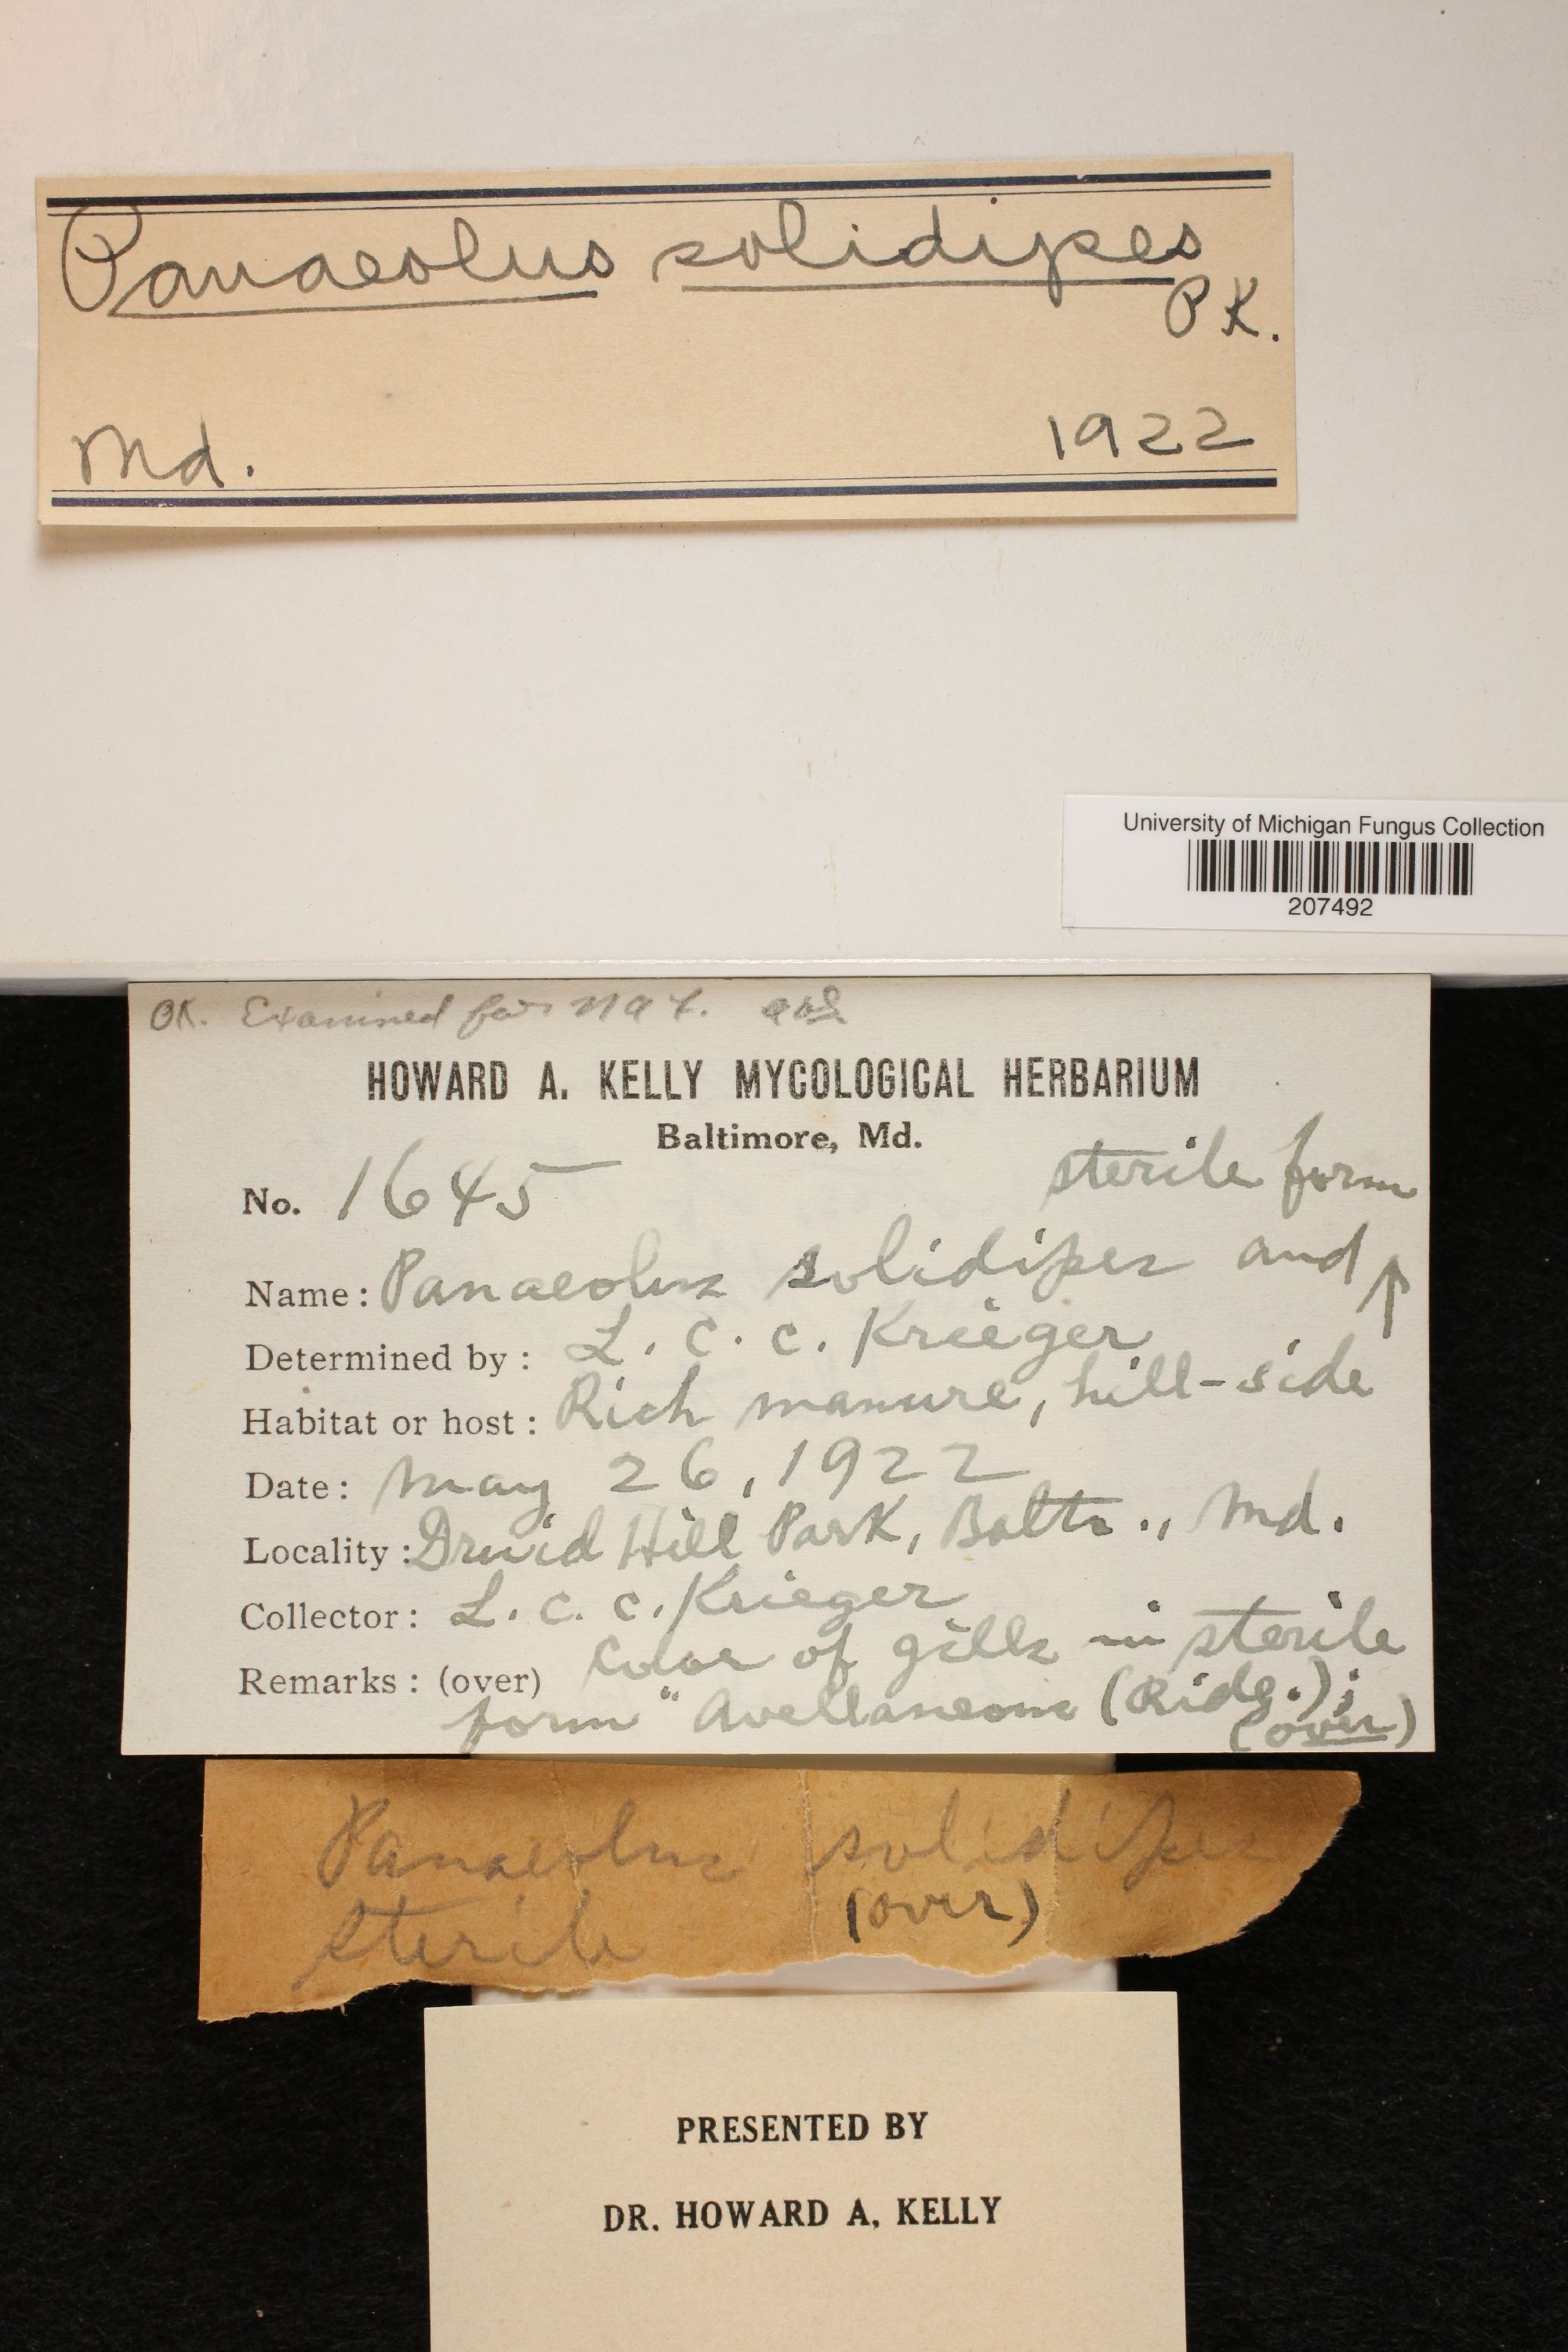 Panaeolus solidipes
PK.
Md. 1922
University of Michigan Fungus Collection
207492
OK. Examined for
HOWARD A. KELLY MYCOLOGICAL HERBARIUM
Baltimore, Md.
No. 1645 sterile form
Name: Panaeolus solidipes and ↑
Determined by: L. C. C. Krieger
Habitat or host: Rich manure, hill-side
Date: May 26, 1922
Locality: Druid Hill Park, Balto., Md.
Collector: L. C. C. Krieger
Remarks: (over) Color of gills in sterile
form "Avellaneous (Ridg.);
(over)
Panaeolus solidipes
sterile (over)
PRESENTED BY
DR. HOWARD A. KELLY